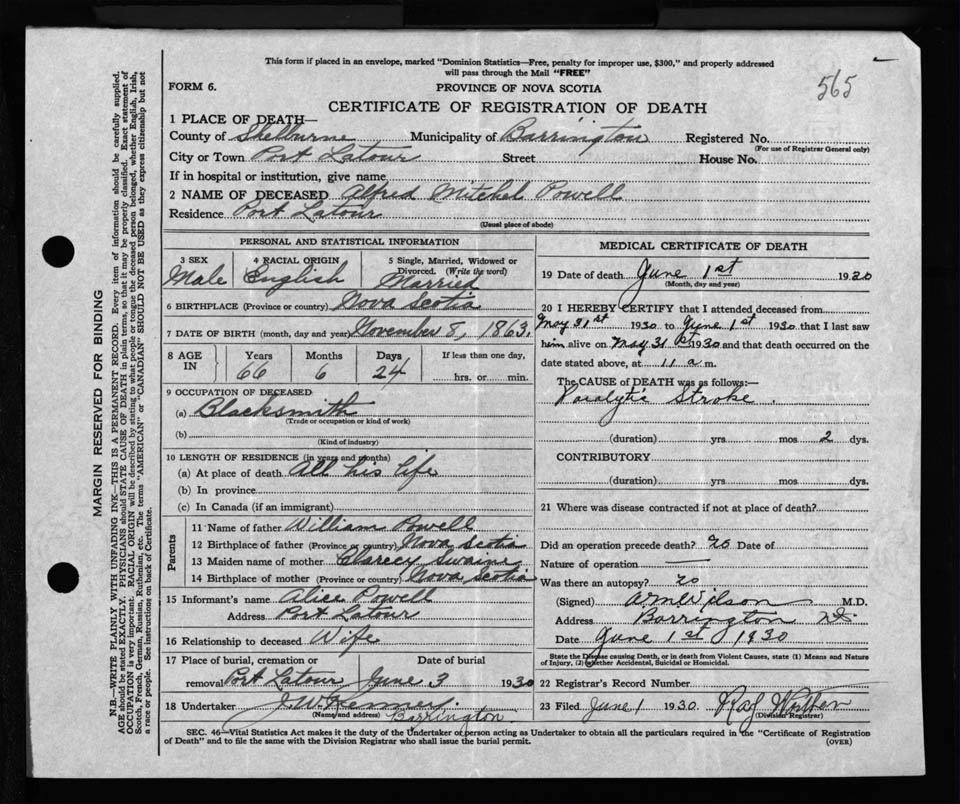 This form if placed in an envelope, marked "Dominion Statistics—Free, penalty for improper use, $300," and properly addressed
will pass through the Mail "FREE"
565
FORM 6.
PROVINCE OF NOVA SCOTIA
CERTIFICATE OF REGISTRATION OF DEATH
1 PLACE OF DEATH—
County of Shelburne Municipality of Barrington Registered No.
(For use of Registrar General only)
City or Town Port Latour Street House No.
If in hospital or institution, give name
2 NAME OF DECEASED Alfred Mitchel Powell
Residence Port Latour
(Usual place of abode)
PERSONAL AND STATISTICAL INFORMATION
3 SEX 4 RACIAL ORIGIN 5 Single, Married, Widowed or
Divorced. (Write the word)
Male English Married
6 BIRTHPLACE (Province or country) Nova Scotia
7 DATE OF BIRTH (month, day and year) November 8, 1863
8 AGE IN Years Months Days If less than one day,
66 6 24 hrs. or min.
9 OCCUPATION OF DECEASED
(a) Blacksmith
(Trade or occupation or kind of work)
(b)
(Kind of industry)
10 LENGTH OF RESIDENCE (in years and months)
(a) At place of death All his life
(b) In province
(c) In Canada (if an immigrant)
Parents
11 Name of father William Powell
12 Birthplace of father (Province or country) Nova Scotia
13 Maiden name of mother Swaine
14 Birthplace of mother (Province or country) Nova Scotia
15 Informant's name Alice Powell
Address Port Latour
16 Relationship to deceased Wife
17 Place of burial, cremation or Date of burial
removal Port Latour June 3 1930
18 Undertaker J.W. Kenney
(Name and address) Barrington
MEDICAL CERTIFICATE OF DEATH
19 Date of death June 1st 1930
(Month, day and year)
20 I HEREBY CERTIFY that I attended deceased from
May 31st 1930 to June 1st 1930 that I last saw
him alive on May 31st 1930 and that death occurred on the
date stated above, at 11 a m.
The CAUSE OF DEATH was as follows:—
Paralytic Stroke.
(duration) yrs mos 2 dys.
CONTRIBUTORY
(duration) yrs. mos dys.
21 Where was disease contracted if not at place of death?
Did an operation precede death? no Date of
Nature of operation —
Was there an autopsy? no
(Signed) A M Wilson M.D.
Address Barrington NS
Date June 1st 1930
State the Disease causing Death, or in death from Violent Causes, state (1) Means and Nature
of Injury, (2) whether Accidental, Suicidal or Homicidal.
22 Registrar's Record Number
23 Filed June 1 1930
(Division Registrar)
SEC. 46—Vital Statistics Act makes it the duty of the Undertaker or person acting as Undertaker to obtain all the particulars required in the "Certificate of Registration
of Death" and to file the same with the Division Registrar who shall issue the burial permit.
(OVER)
MARGIN RESERVED FOR BINDING
N.B.—WRITE PLAINLY WITH UNFADING INK—THIS IS A PERMANENT RECORD. Every item of information should be carefully supplied.
AGE should be stated EXACTLY. PHYSICIANS should STATE CAUSE OF DEATH in plain terms, so that it may be properly classified. Exact statement of
OCCUPATION is very important. RACIAL ORIGIN will be described by stating to what people or tongue the deceased person belonged, whether English, Irish,
Scotch, French, German, Russian, Ruthenian, etc. The terms "AMERICAN" or "CANADIAN" SHOULD NOT BE USED as they express citizenship but not
a race or people. See instructions on back of Certificate.